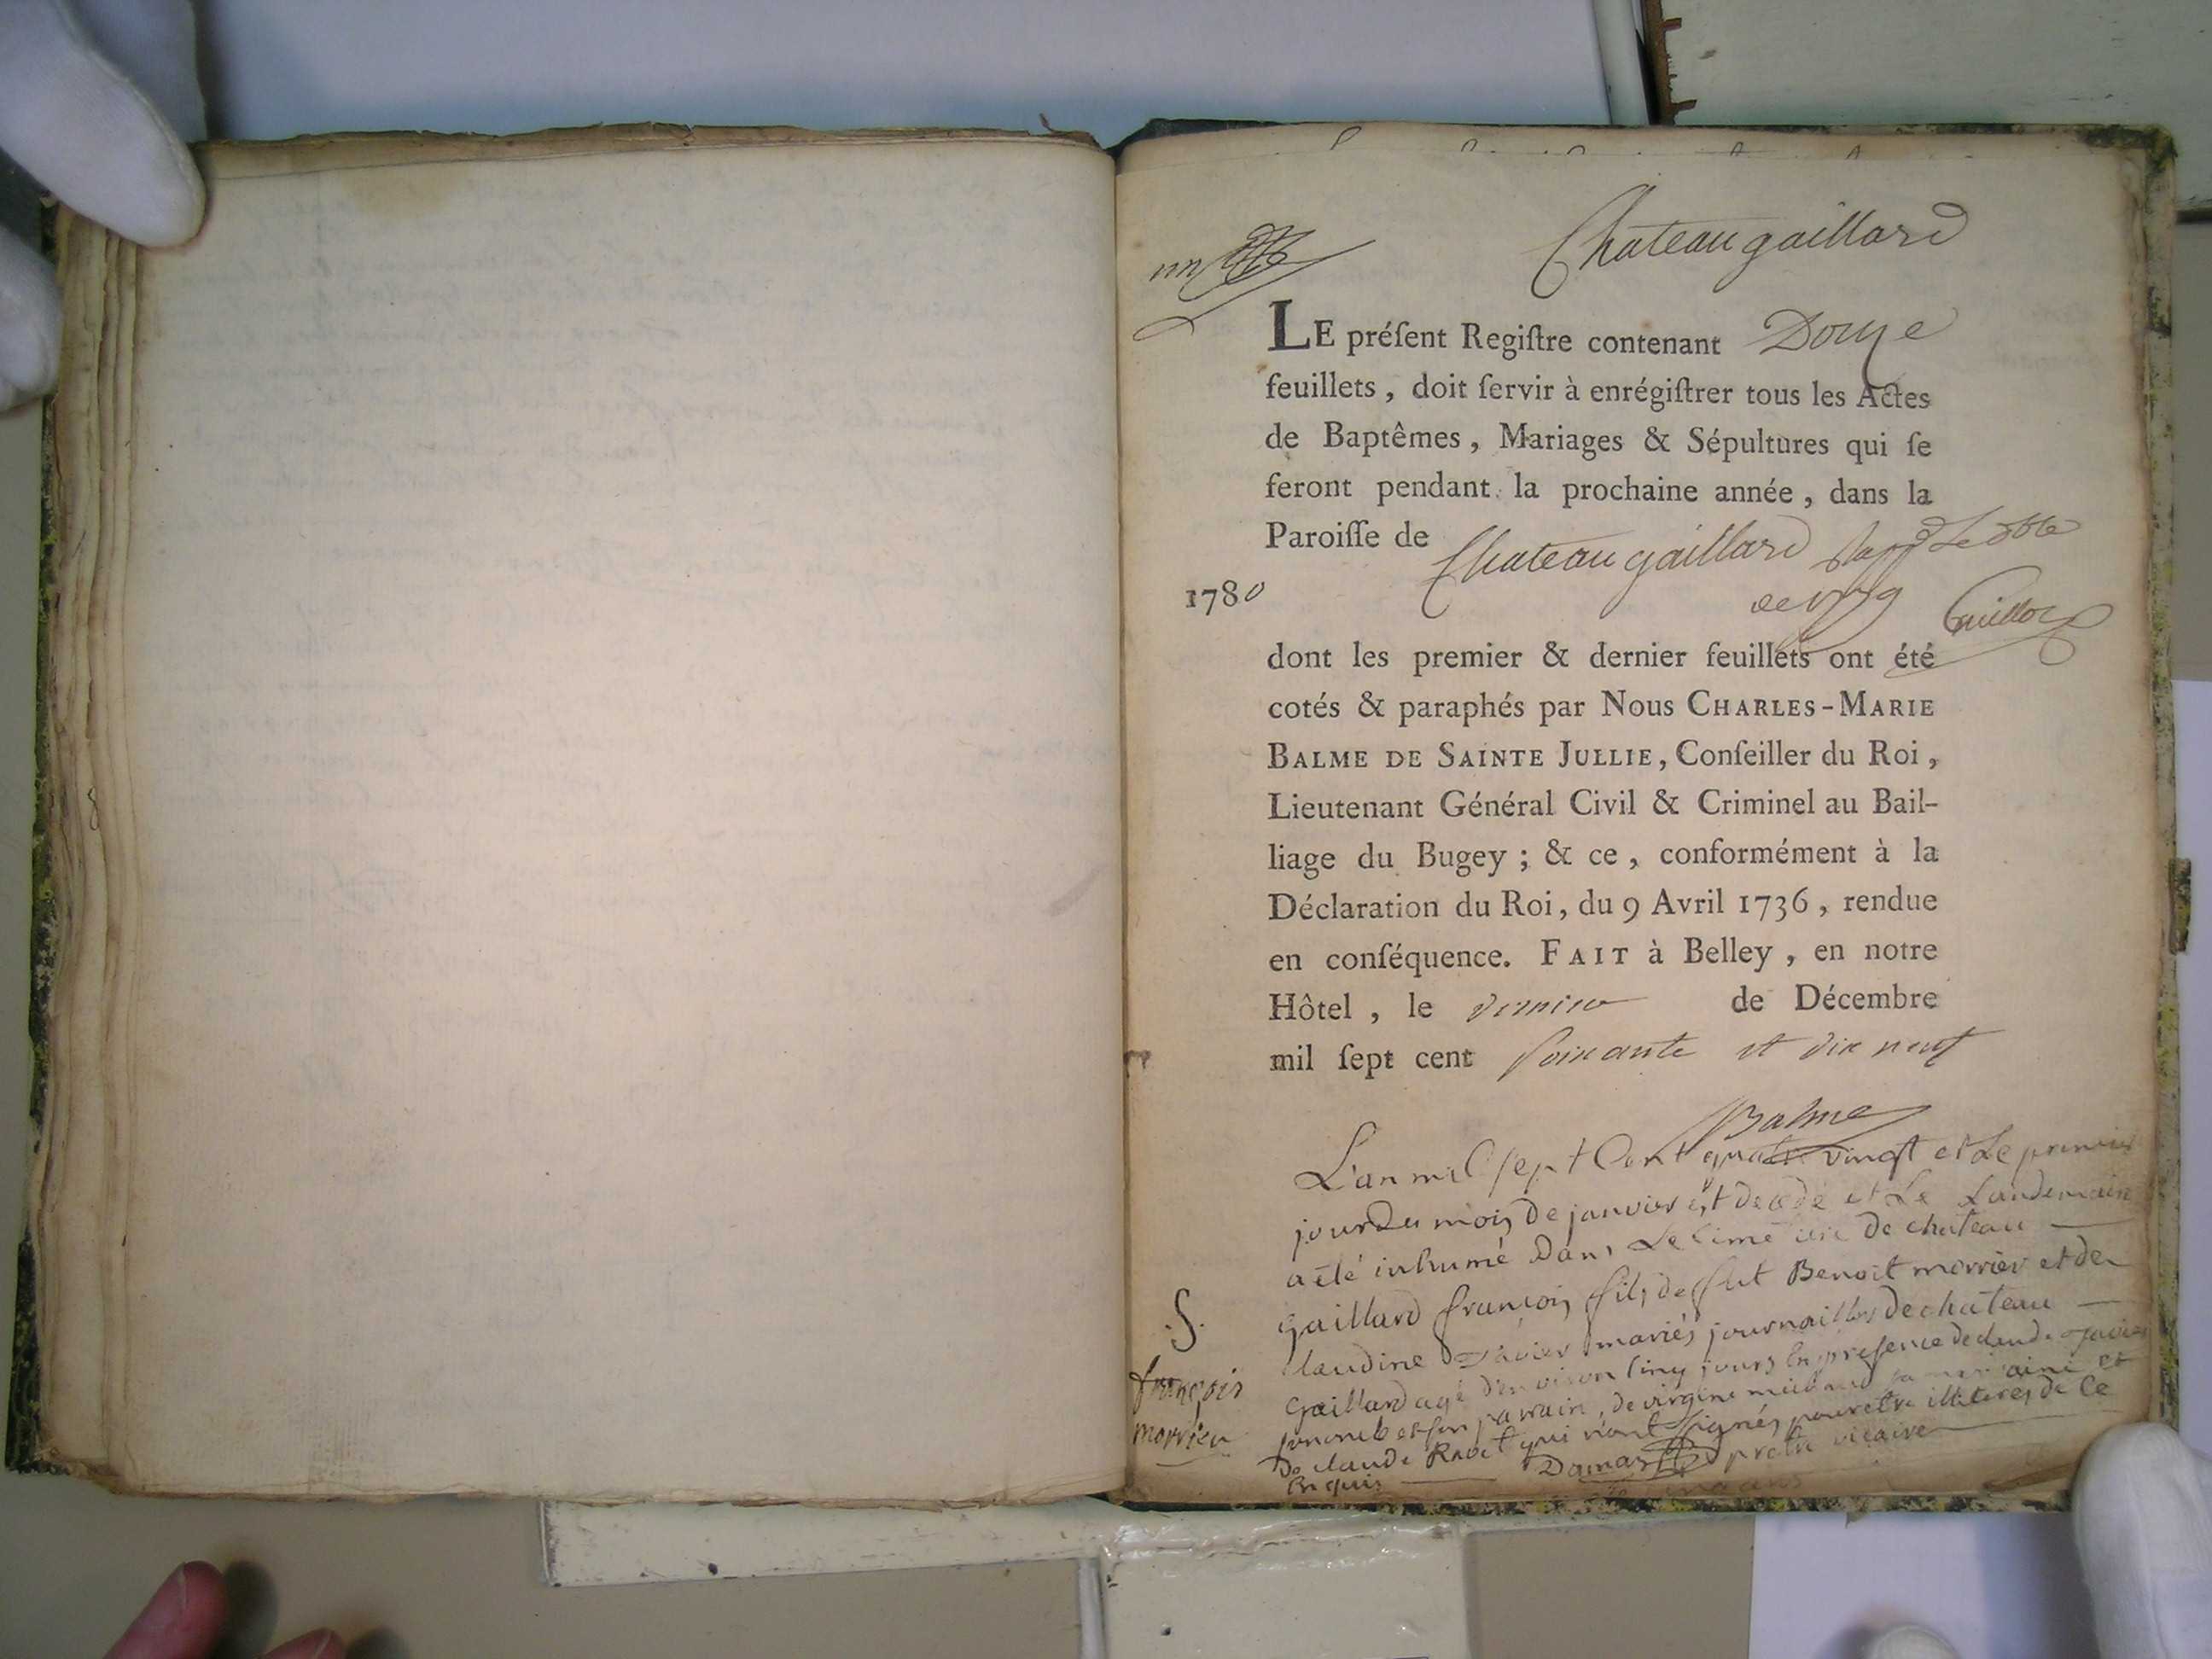 Chateaugaillard
LE préſent Regiſtre contenant Douze
feuillets, doit ſervir à enrégiſtrer tous les Actes
de Baptêmes, Mariages & Sépultures qui ſe
feront pendant la prochaine année, dans la
Paroiſſe de Chateaugaillard
1780
dont les premier & dernier feuillets ont été
cotés & paraphés par Nous CHARLES-MARIE
BALME DE SAINTE JULLIE, Conſeiller du Roi,
Lieutenant Général Civil & Criminel au Bail-
liage du Bugey ; & ce, conformément à la
Déclaration du Roi, du 9 Avril 1736, rendue
en conſéquence. FAIT à Belley, en notre
Hôtel, le dernier de Décembre
mil ſept cent soixante et dix neuf
Balme
L'an mil sept Cent quatre vingt et Le premier
jour Du mois De janvier est décédé et Le Landemain
a été inhumé Dans Le Cimetière De chateau
gaillard françois fils de fut Benoit morrier et de
Claudine mariés journailler de chateau
gaillard agé d'environ Cinq jours En présence de claude
parrain, de virgine et
De claude Ravet qui n'ont signés pour etre illitérés de Ce
Enquis Damas pretre vicaire
.S.
françois
morrier